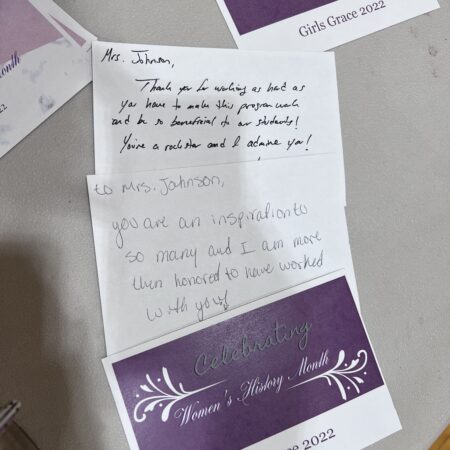 Month
2022
Girls Grace 2022
Mrs. Johnson,
Thank you for working as hard as
you have to make this program work
and be so beneficial to our students!
You're a rockstar and I admire you!
to Mrs. Johnson,
you are an inspiration to
so many and I am more
then honored to have worked
with you!
Celebrating
Women's History Month
ce 2022